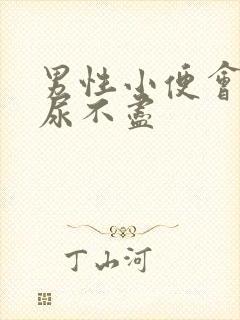 男性小便會
尿不盡
丁山河